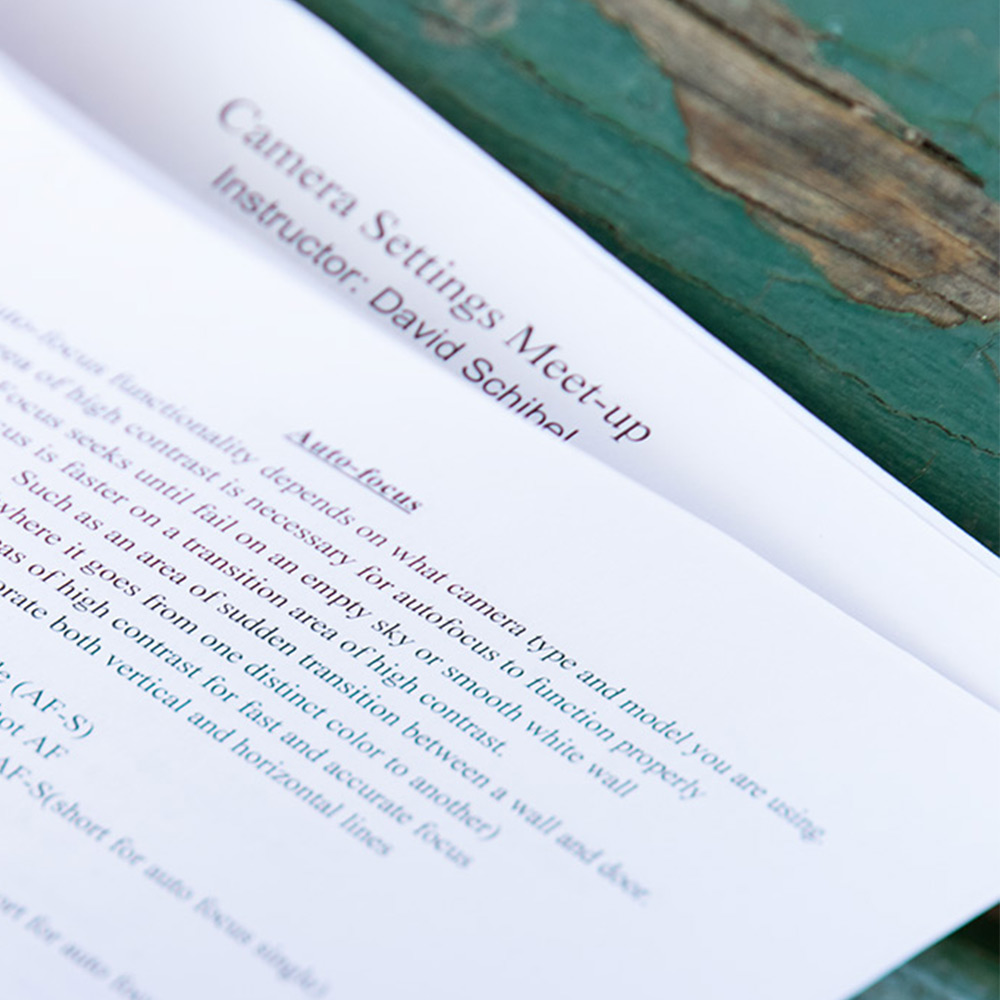 Camera Settings Meet-up
Instructor: David Schibel
Auto-focus
focus functionality depends on what camera type and model you are using.
of high contrast is necessary for autofocus to function properly
Focus seeks until fail on an empty sky or smooth white wall
is faster on a transition area of high contrast.
Such as an area of sudden transition between a wall and door.
where it goes from one distinct color to another)
of high contrast for fast and accurate focus
both vertical and horizontal lines
(AF-S)
AF
AF-S(short for auto focus single)
for auto